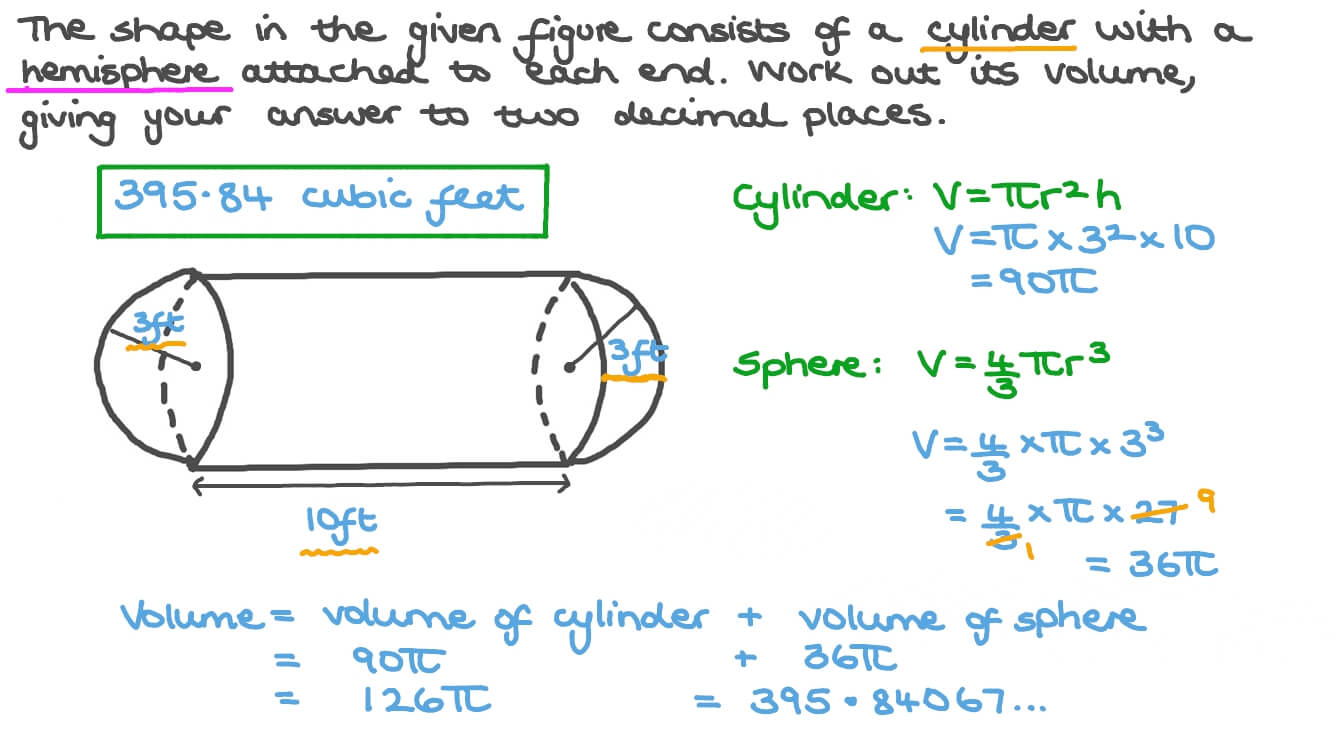 The shape in the given figure consists of a cylinder with a
hemisphere attached to each end. Work out its volume,
giving your answer to two decimal places.
395.84 cubic feet
Cylinder: V=πr²h
V=π×3²×10
=90π
3ft
3ft
Sphere: V=4/3πr³
V=4/3×π×3³
=4/3×π×27 9
1
=36π
10ft
Volume = volume of cylinder + volume of sphere
= 90π + 36π
= 126π = 395.84067...